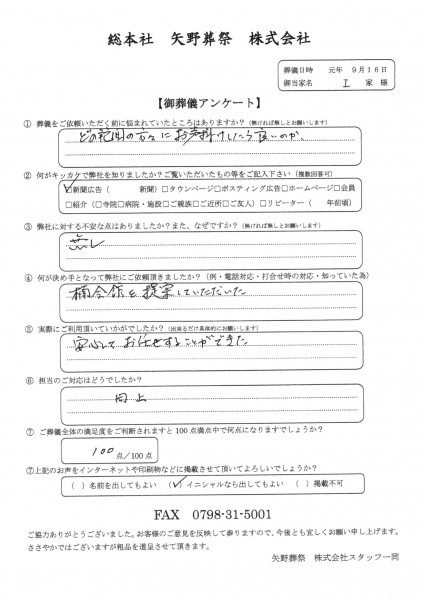 総本社 矢野葬祭 株式会社
葬儀日時 元年 9月16日
御当家名 I 家 様
【御葬儀アンケート】
① 葬儀をご依頼いただく前に悩まれていたところはありますか？（無ければ無しとお願いします）
どの範囲の方々にお声掛けしたら良いのか、
② 何がキッカケで弊社を知りましたか？ご覧いただいたもの等をご記入下さい（複数回答可）
☑新聞広告（ 新聞）□タウンページ□ポスティング広告□ホームページ□会員
□紹介（□寺院□病院・施設□ご親族□ご近所□ご友人）□リピーター（ 年前頃）
③ 弊社に対する不安な点はありましたか？また、なぜですか？（無ければ無しとお願いします）
無し
④ 何が決め手となって弊社にご依頼頂きましたか？（例・電話対応・打合せ時の対応・知っていた為）
楠会館を提案していただいた
⑤ 実際にご利用頂いていかがでしたか？（出来るだけ具体的にお願いします）
安心してお任せすることができた
⑥ 担当のご対応はどうでしたか？
同上
⑦ ご葬儀全体の満足度をご判断されますと100点満点中で何点になりますでしょうか？
100 点/100点
⑦上記のお声をインターネットや印刷物などに掲載させて頂いてよろしいでしょうか？
（ ）名前を出してもよい （✓）イニシャルなら出してもよい （ ）掲載不可
FAX 0798-31-5001
ご協力ありがとうございました。お客様のご意見を反映して参りますので、今後とも宜しくお願い申し上げます。
ささやかではございますが粗品を進呈させて頂きます。
矢野葬祭 株式会社スタッフ一同